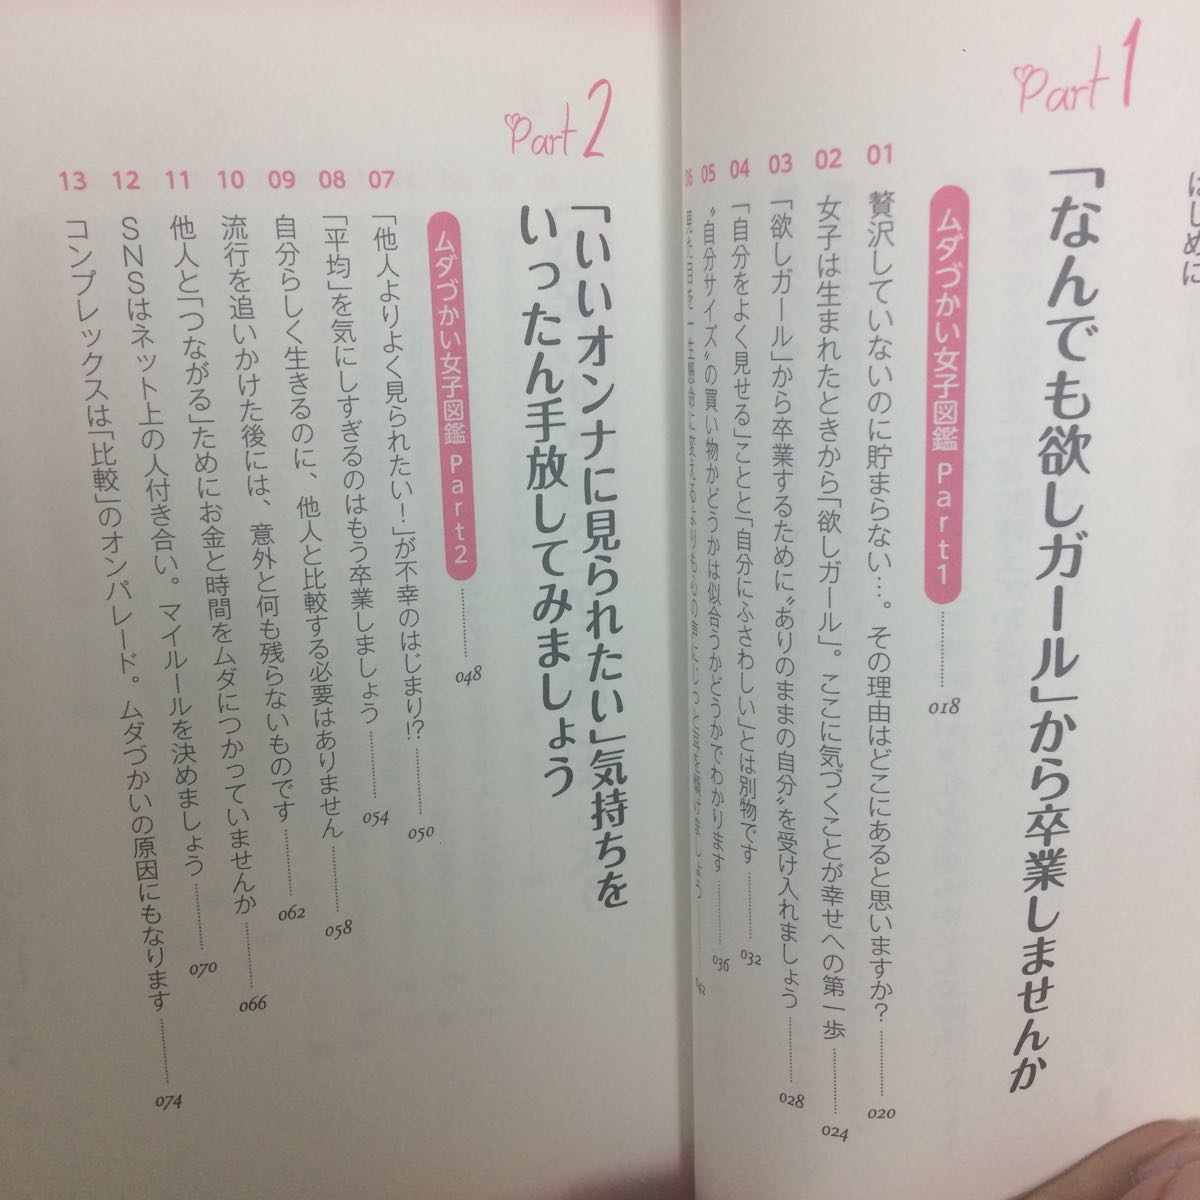 はじめに
Part 1
「なんでも欲しガール」から卒業しませんか
ムダづかい女子図鑑 Part1 018
01 贅沢していないのに貯まらない…。その理由はどこにあると思いますか? 020
02 女子は生まれたときから「欲しガール」。ここに気づくことが幸せへの第一歩 024
03 「欲しガール」から卒業するために“ありのままの自分”を受け入れましょう 028
04 「自分をよく見せる」ことと「自分にふさわしい」とは別物です 032
05 “自分サイズ”の買い物かどうかは似合うかどうかでわかります 036
06 見た目を一生懸命に変えるよりも心の声にじっと耳を傾けましょう 042
Part 2
「いいオンナに見られたい」気持ちを
いったん手放してみましょう
ムダづかい女子図鑑 Part2 048
07 「他人よりよく見られたい!」が不幸のはじまり!? 050
08 「平均」を気にしすぎるのはもう卒業しましょう 054
09 自分らしく生きるのに、他人と比較する必要はありません 058
10 流行を追いかけた後には、意外と何も残らないものです 062
11 他人と「つながる」ためにお金と時間をムダにつかっていませんか 066
12 SNSはネット上の人付き合い。マイルールを決めましょう 070
13 コンプレックスは「比較」のオンパレード。ムダづかいの原因にもなります 074